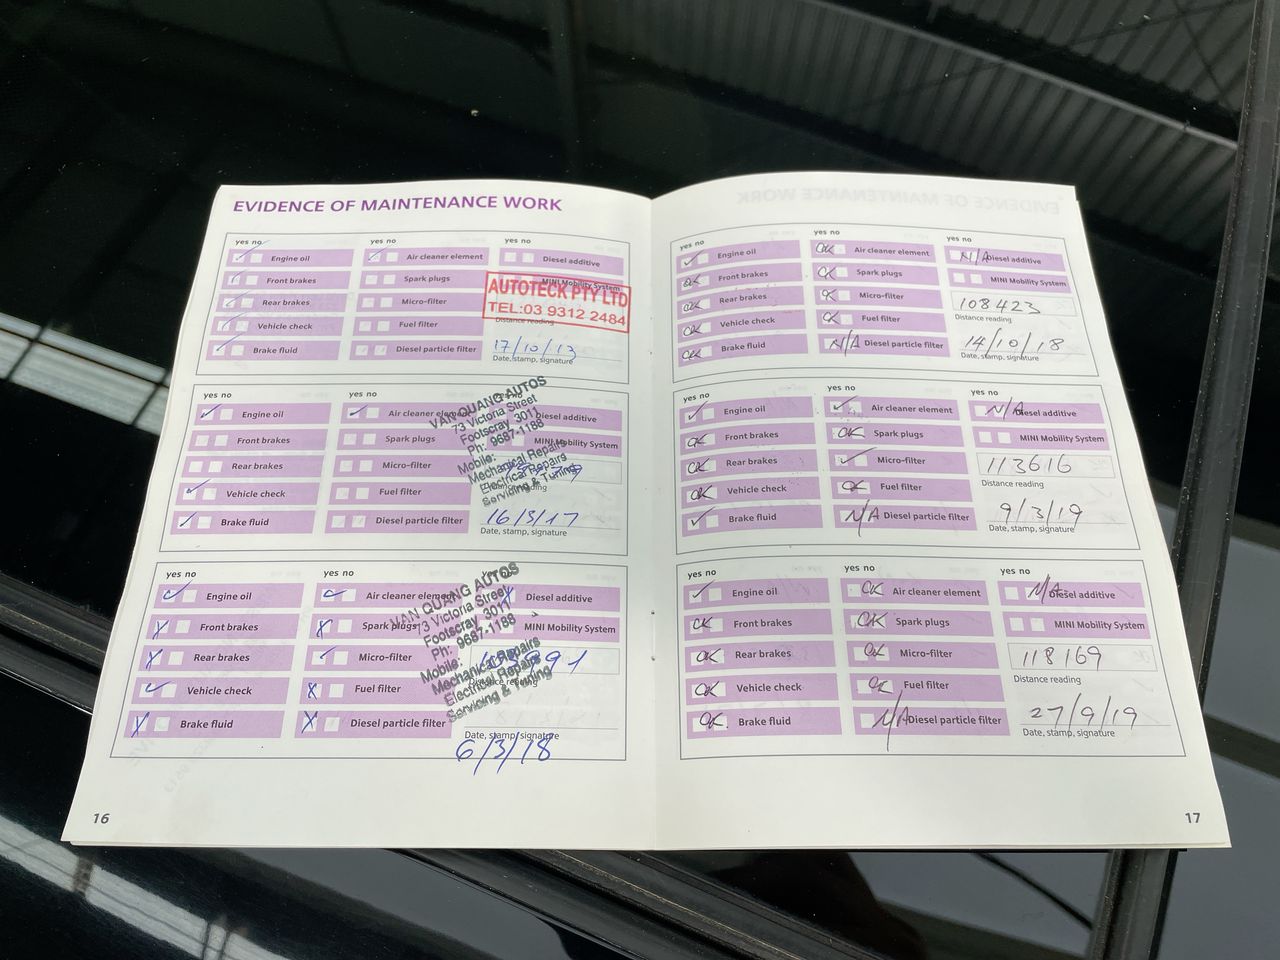 EVIDENCE OF MAINTENANCE WORK
yes no yes no yes no
Engine oil Air cleaner element Diesel additive
Front brakes Spark plugs MINI Mobility System
Rear brakes Micro-filter
AUTOTECK PTY LTD
TEL:03 9312 2484
Distance reading
Vehicle check Fuel filter
17/10/13
Brake fluid Diesel particle filter Date, stamp, signature
yes no yes no
Engine oil Air cleaner element Diesel additive
Front brakes Spark plugs MINI Mobility System
Rear brakes Micro-filter
Vehicle check Fuel filter
Brake fluid Diesel particle filter
VAN QUANG AUTOS
73 Victoria Street
Footscray, 3011
Ph: 9687-1188
Mobile:
Mechanical Repairs
Electrical Repairs
Servicing & Tuning
16/3/17
Date, stamp, signature
yes no yes no
Engine oil Air cleaner element X Diesel additive
X Front brakes X Spark plugs MINI Mobility System
X Rear brakes Micro-filter
Vehicle check X Fuel filter
X Brake fluid X Diesel particle filter
VAN QUANG AUTOS
73 Victoria Street
Footscray, 3011
Ph: 9687-1188
Mobile:
Mechanical Repairs
Electrical Repairs
Servicing & Tuning
Distance reading
Date, stamp, signature
6/3/18
16
yes no yes no yes no
Engine oil OK Air cleaner element N/A Diesel additive
OK Front brakes OK Spark plugs MINI Mobility System
OK Rear brakes OK Micro-filter 108423
Distance reading
OK Vehicle check OK Fuel filter
14/10/18
OK Brake fluid N/A Diesel particle filter Date, stamp, signature
yes no yes no yes no
Engine oil Air cleaner element N/A Diesel additive
OK Front brakes OK Spark plugs MINI Mobility System
OK Rear brakes Micro-filter 113616
Distance reading
OK Vehicle check OK Fuel filter
9/3/19
Brake fluid N/A Diesel particle filter Date, stamp, signature
yes no yes no yes no
Engine oil OK Air cleaner element N/A Diesel additive
OK Front brakes OK Spark plugs MINI Mobility System
OK Rear brakes OK Micro-filter 118169
Distance reading
OK Vehicle check OK Fuel filter
27/9/19
OK Brake fluid N/A Diesel particle filter Date, stamp, signature
17